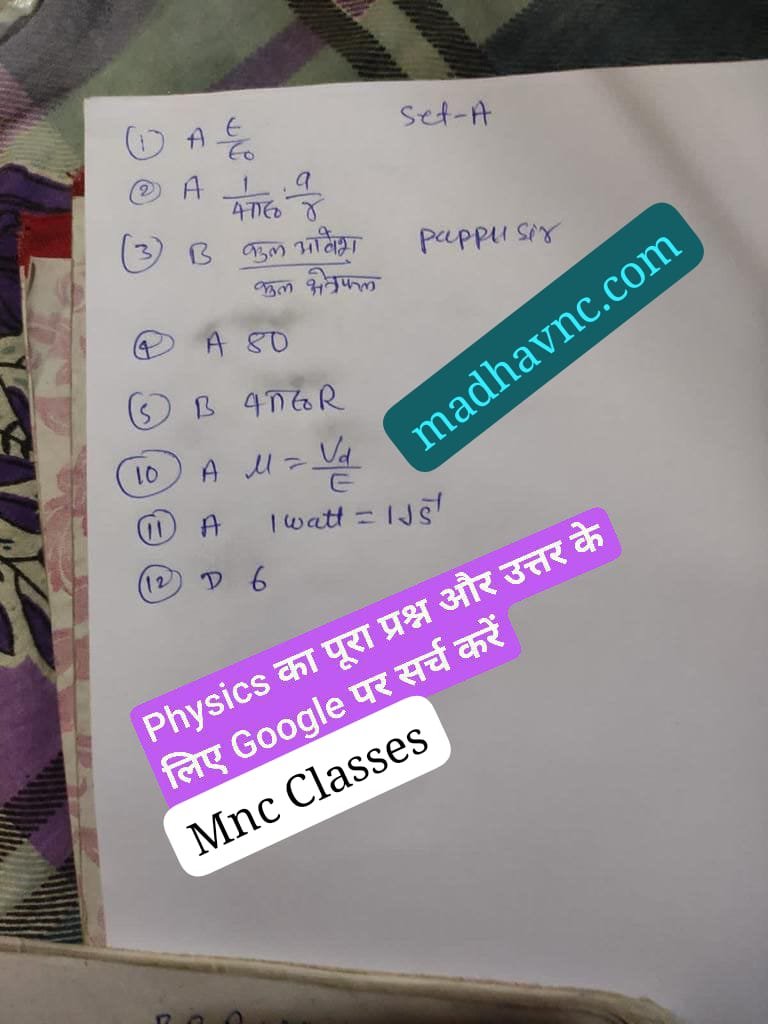 Set-A
① A ε/ε₀
② A 1/4πε₀ . q/r
③ B कुल आवेश / कुल क्षेत्रफल
pappu sir
④ A 80
⑤ B 4πε₀R
⑩ A μ = Vd/E
⑪ A 1 watt = 1 J s⁻¹
⑫ D 6
madhavnc.com
Physics का पूरा प्रश्न और उत्तर के
लिए Google पर सर्च करें
Mnc Classes